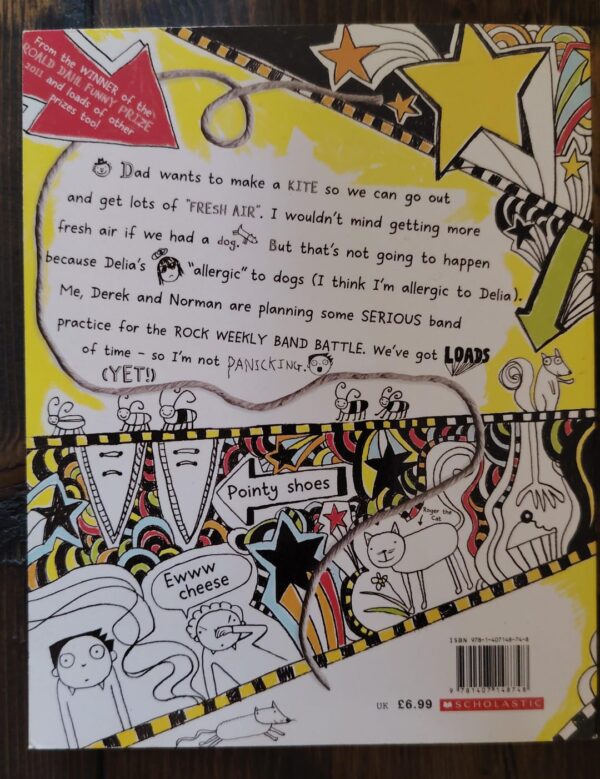 From the WINNER of the
ROALD DAHL FUNNY PRIZE
2011 and loads of other
prizes too!
Dad wants to make a KITE so we can go out
and get lots of "FRESH AIR". I wouldn't mind getting more
fresh air if we had a dog. But that's not going to happen
because Delia's "allergic" to dogs (I think I'm allergic to Delia).
Me, Derek and Norman are planning some SERIOUS band
practice for the ROCK WEEKLY BAND BATTLE. We've got LOADS
of time - so I'm not PANICKING.
(YET!)
Pointy shoes
Roger the
Cat
Ewww
cheese
ISBN 978-1-407148-74-8
9 781407 148748
UK £6.99 SCHOLASTIC